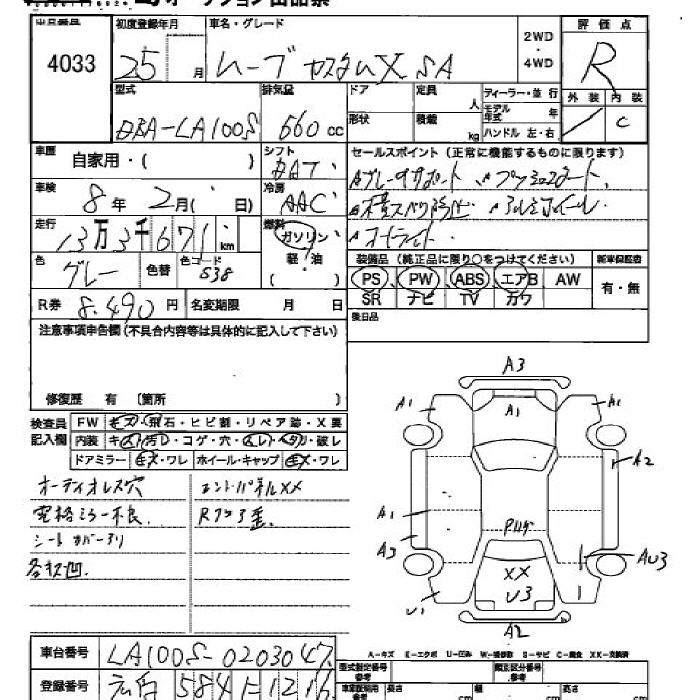 出品番号 初度登録年月 車名・グレード 2WD・4WD 評価点
4033 25 月 ムーブ カスタムX SA R
型式 排気量 ドア 定員 人 ディーラー・並行 外装 内装
DBA-LA100S 660cc 形状 積載 kg モデル年式 年 ハンドル 左・右 C
車歴 自家用・( ) シフト セールスポイント(正常に機能するものに限ります)
車検 8年 2月( 日) 冷房 AAC
走行 13万3千671km 燃料 ガソリン 軽・油 ( )
オートライト
色 グレー 色替 色コード 装備品(純正品に限り○をつけてください) 新車保証書
PS PW ABS エアB AW 有・無
SR ナビ TV カワ
R券 8,490円 名変期限 月 日 後日品
注意事項申告欄(不具合内容等は具体的に記入して下さい)
修復歴 有 〔箇所 〕
検査員記入欄 FW キズ・飛石・ヒビ割・リペア跡・X裏
内装 キズ・汚レ・コゲ・穴・スレ・ヘタリ・破レ
ドアミラー キズ・ワレ ホイール・キャップ キズ・ワレ
オーディオレス穴 エンドパネルXX
シートカバーアリ
A3
A1 A1 A1
A2
A1
A3 AU3
XX
U3
U1 1
A2
A-キズ E-エクボ U-凹み W-補修跡 S-サビ C-腐食 XX-交換済
車台番号 LA100S-0203047
型式指定番号 参考 類別区分番号 参考
登録番号 584 長さ cm 幅 cm 高さ cm